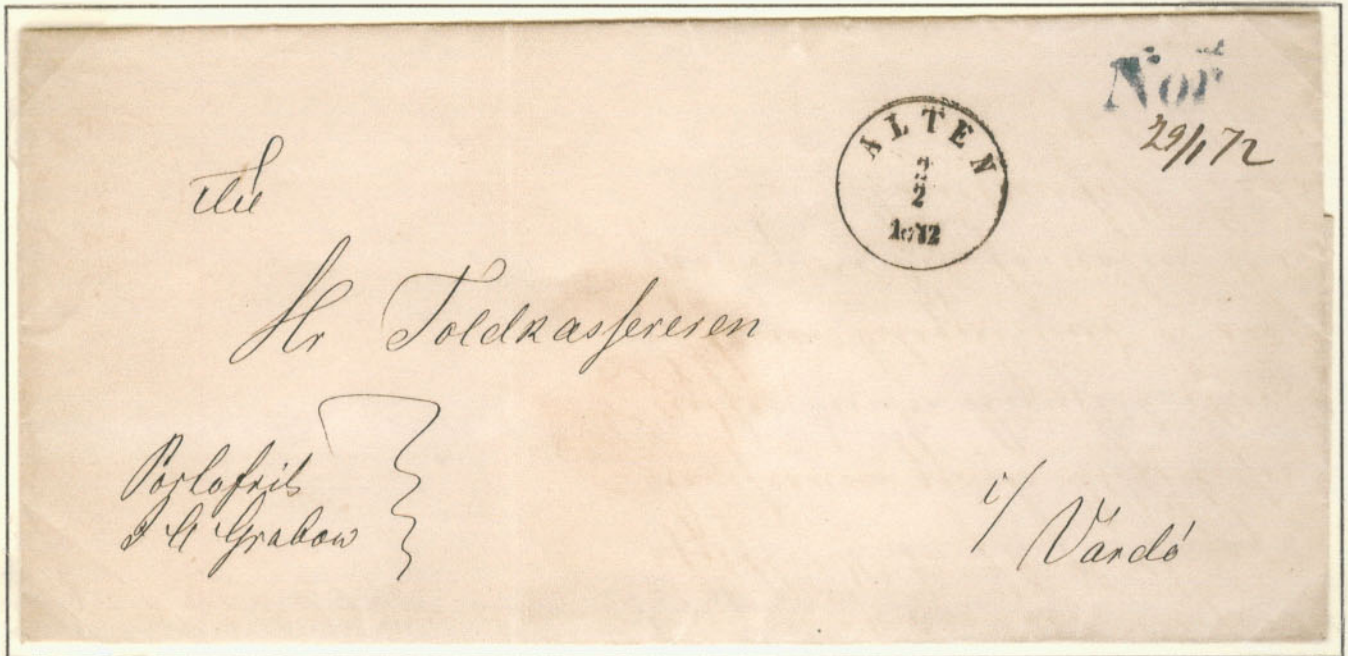 Nor
29/1 72
ALTEN
2
2
1872
Til
Hr Toldkassereren
Portofrit
Grabow
i/
Vardö